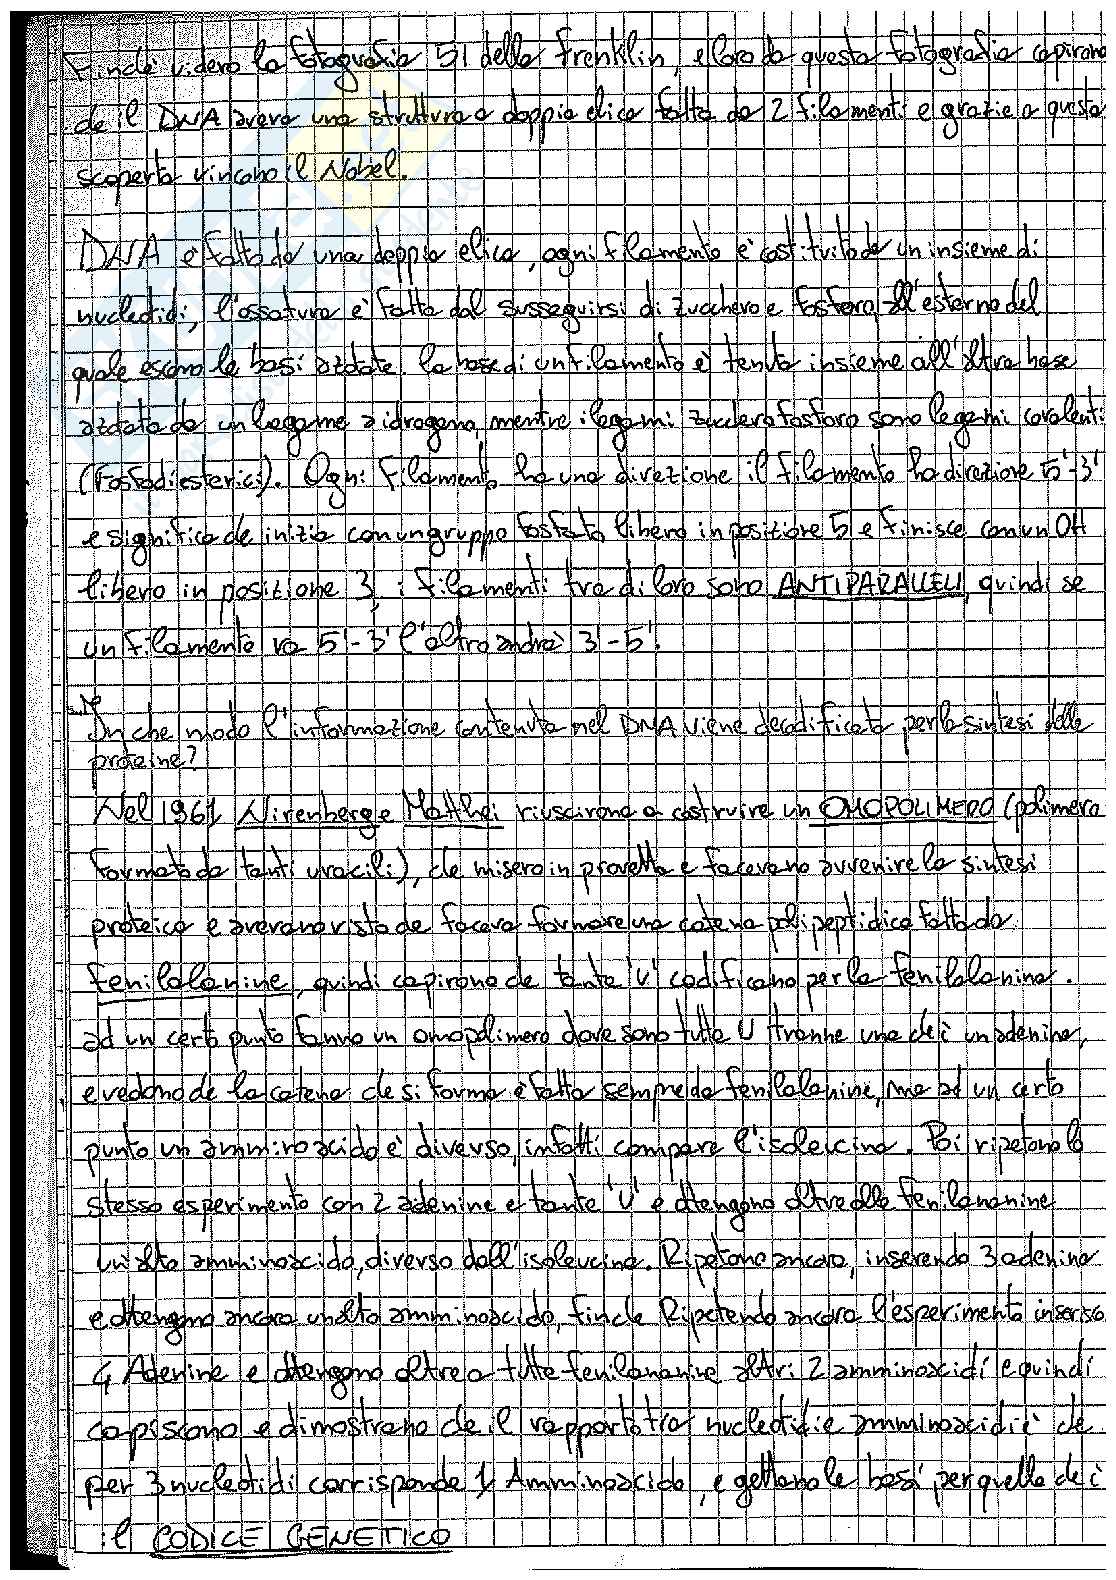 Finché videro la fotografia 51 della Frenklin, e loro da questa fotografia capirono
che il DNA aveva una struttura a doppia elica fatta da 2 filamenti e grazie a questa
scoperta vincono il Nobel.
DNA è fatto da una doppia elica, ogni filamento è costituito da un insieme di
nucleotidi, l'ossatura è fatta dal susseguirsi di zucchero e fosforo, all'esterno del
quale escono le basi azotate. la base di un filamento è tenuta insieme all'altra base
azotata da un legame a idrogeno, mentre i legami zucchero fosforo sono legami covalenti
(Fosfodiesterici). Ogni filamento ha una direzione il filamento ha direzione 5'-3'
e significa che inizia con un gruppo fosfato libero in posizione 5 e finisce con un OH
libero in posizione 3, i filamenti tra di loro sono ANTIPARALLELI, quindi se
un filamento va 5'-3' l'altro andrà 3'-5'.
In che modo l'informazione contenuta nel DNA viene decodificata per la sintesi delle
proteine?
Nel 1961 Nirenberg e Matthei riuscirono a costruire un OMOPOLIMERO (polimero
formato da tanti uracili), che misero in provetta e facevano avvenire la sintesi
proteica e avevano visto che faceva formare una catena polipeptidica fatta da
fenilalanine, quindi capirono che tante 'U' codificano per la fenilalanina.
ad un certo punto fanno un omopolimero dove sono tutte U tranne una che è un adenina,
e vedono che la catena che si forma è fatta sempre da fenilalanine, ma ad un certo
punto un amminoacido è diverso, infatti compare l'isoleucina. Poi ripetono lo
stesso esperimento con 2 adenine e tante 'U' e ottengono oltre alle fenilananine
un'altro amminoacido, diverso dall'isoleucina. Ripetono ancora, inserendo 3 adenine
e ottengono ancora un altro amminoacido, finche Ripetendo ancora l'esperimento inserisco
4 Adenine e ottengono oltre a tutte fenilananine altri 2 amminoacidi e quindi
capiscono e dimostrano che il rapporto tra nucleotidi e amminoacidi è che
per 3 nucleotidi corrisponde 1 Amminoacido, e gettano le basi per quello che è
il CODICE GENETICO